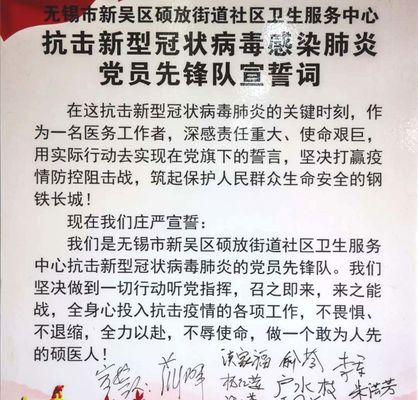 无锡市新吴区硕放街道社区卫生服务中心
抗击新型冠状病毒感染肺炎
党员先锋队宣誓词
在这抗击新型冠状病毒肺炎的关键时刻，作
为一名医务工作者，深感责任重大、使命艰巨，
用实际行动去实现在党旗下的誓言，坚决打赢疫
情防控阻击战，筑起保护人民群众生命安全的钢
铁长城！
现在我们庄严宣誓：
我们是无锡市新吴区硕放街道社区卫生服务
中心抗击新型冠状病毒肺炎的党员先锋队。我们
坚决做到一切行动听党指挥，召之即来，来之能
战，全身心投入抗击疫情的各项工作，不畏惧、
不退缩，全力以赴，不辱使命，做一个敢为人先
的硕医人！